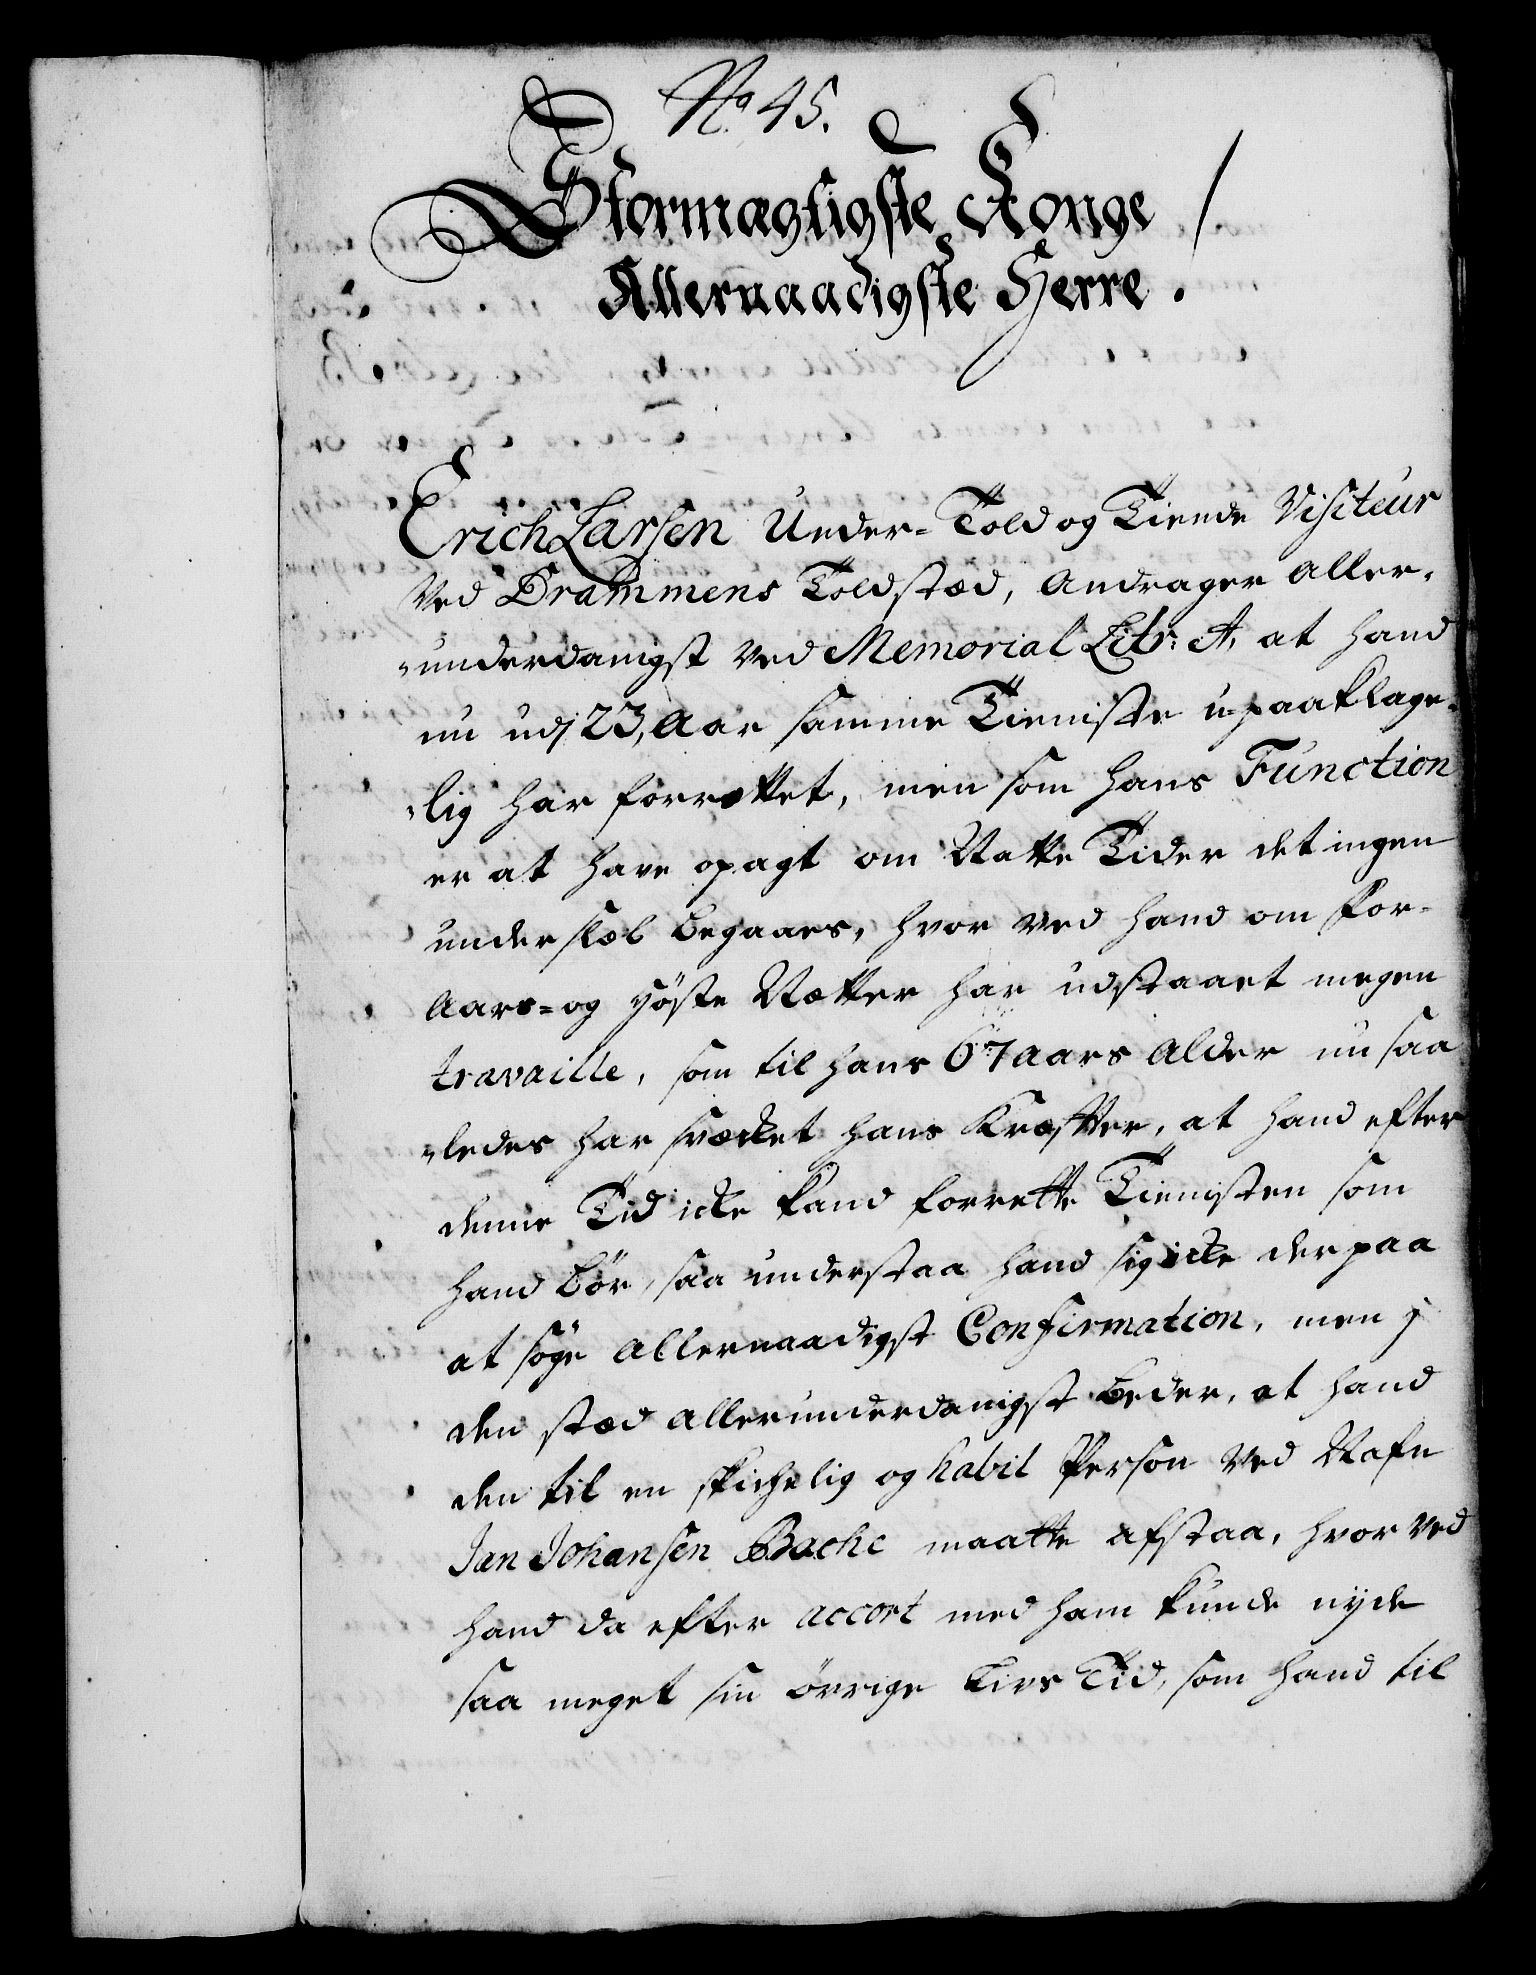 No 45.
Stormægtigste Konge
Allernaadigste Herre!
Erich Larsen Under-Told og Tiende Visiteur
ved Drammens Toldstæd, andrager aller-
underdanigst ved Memorial Litr: A, at hand
nu udj 23, Aar samme Tieniste upaaklage-
lig har forrettet, men som hans Function
er at have opagt om Natte Tider det ingen
underslæb begaaes, hvor ved hand om For-
Aars- og Høste Nætter har udstaaet megen
travaille, som til hans 67 Aars Alder nu saa
ledes har svæcket hans Kræfter, at hand efter
denne Tid icke kand forrette Tienisten som
hand bör, saa understaa hand sig icke derpaa
at söge allernaadigst Confirmation, men j
den stæd allerunderdanigst beder, at hand
den til en skichelig og habil Person ved Nafn
Jan Johansen Bache maatte afstaa, hvor ved
hand da efter accort med ham kunde nyde
saa meget sin övrige Livs Tid, som hand til